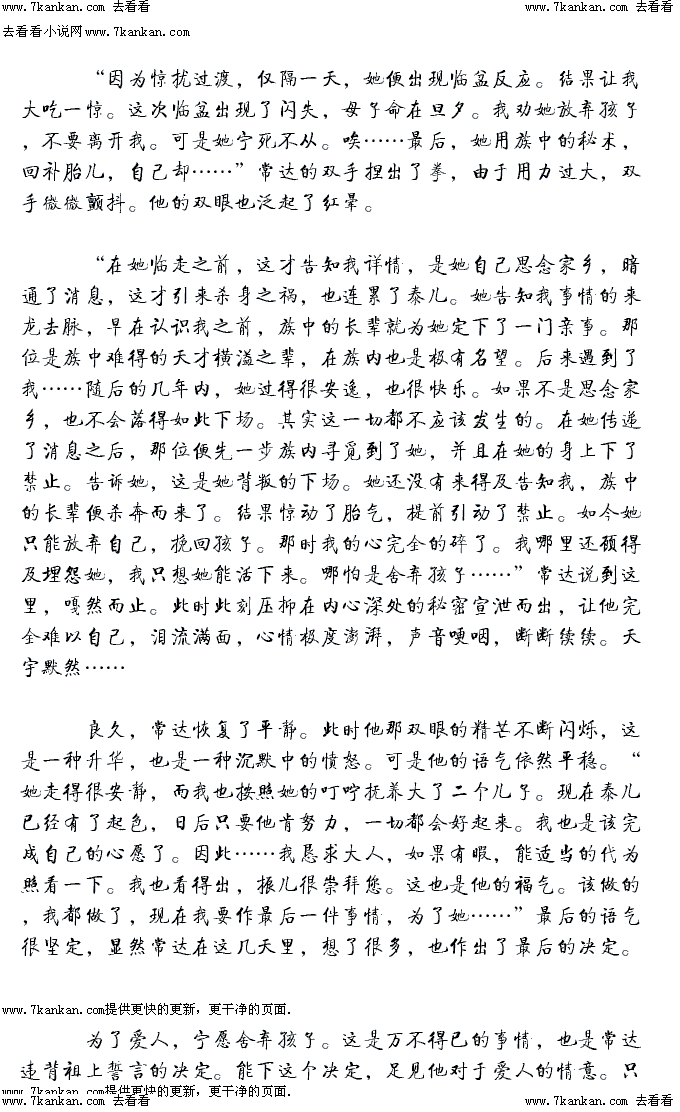 www.7kankan.com 去看看 www.7kankan.com 去看看
去看看小说网www.7kankan.com
“因为惊扰过渡，仅隔一天，她便出现临盆反应。结果让我
大吃一惊。这次临盆出现了闪失，母子命在旦夕。我劝她放弃孩子
，不要离开我。可是她宁死不从。唉……最后，她用族中的秘术，
回补胎儿，自己却……”常达的双手捏出了拳，由于用力过大，双
手微微颤抖。他的双眼也泛起了红晕。
“在她临走之前，这才告知我详情，是她自己思念家乡，暗
通了消息，这才引来杀身之祸，也连累了泰儿。她告知我事情的来
龙去脉，早在认识我之前，族中的长辈就为她定下了一门亲事。那
位是族中难得的天才横溢之辈，在族内也是极有名望。后来遇到了
我……随后的几年内，她过得很安逸，也很快乐。如果不是思念家
乡，也不会落得如此下场。其实这一切都不应该发生的。在她传递
了消息之后，那位便先一步族内寻觅到了她，并且在她的身上下了
禁止。告诉她，这是她背叛的下场。她还没有来得及告知我，族中
的长辈便杀奔而来了。结果惊动了胎气，提前引动了禁止。如今她
只能放弃自己，挽回孩子。那时我的心完全的碎了。我哪里还顾得
及埋怨她，我只想她能活下来。哪怕是舍弃孩子……”常达说到这
里，嘎然而止。此时此刻压抑在内心深处的秘密宣泄而出，让他完
全难以自己，泪流满面，心情极度澎湃，声音哽咽，断断续续。天
宇默然……
良久，常达恢复了平静。此时他那双眼的精芒不断闪烁，这
是一种升华，也是一种沉默中的愤怒。可是他的语气依然平稳。“
她走得很安静，而我也按照她的叮咛抚养大了二个儿子。现在泰儿
已经有了起色，日后只要他肯努力，一切都会好起来。我也是该完
成自己的心愿了。因此……我恳求大人，如果有暇，能适当的代为
照看一下。我也看得出，振儿很崇拜您。这也是他的福气。该做的
，我都做了，现在我要作最后一件事情，为了她……”最后的语气
很坚定，显然常达在这几天里，想了很多，也作出了最后的决定。
www.7kankan.com提供更快的更新，更干净的页面．
为了爱人，宁愿舍弃孩子。这是万不得已的事情，也是常达
违背祖上誓言的决定。能下这个决定，足见他对于爱人的情意。只
www.7kankan.com提供更快的更新，更干净的页面．
www.7kankan.com 去看看 www.7kankan.com 去看看